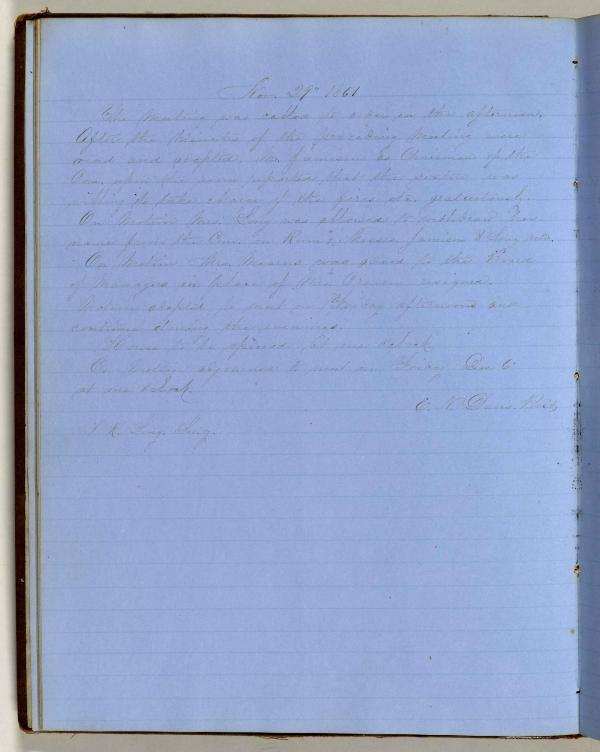 Nov. 29th 1861
The Meeting was called to order in the afternoon.
After the Minutes of the preceding Meeting were
read and adopted, Mrs. Jamison as Chairman of the
Com. upon the room reported that the sexton was
willing to take charge of the fires etc. gratuitously.
On Motion Mrs. Long was allowed to withdraw her
name from the Com. on Rooms, Jamison &
On Motion Mrs. was added to the Board
of Managers in place of Mrs. resigned.
Motion adopted to meet on Friday afternoons and
continue during the evenings.
House to be opened at one o'clock
On Motion adjourned to meet on Friday Dec 6th
at one o'clock
E. N. Davis